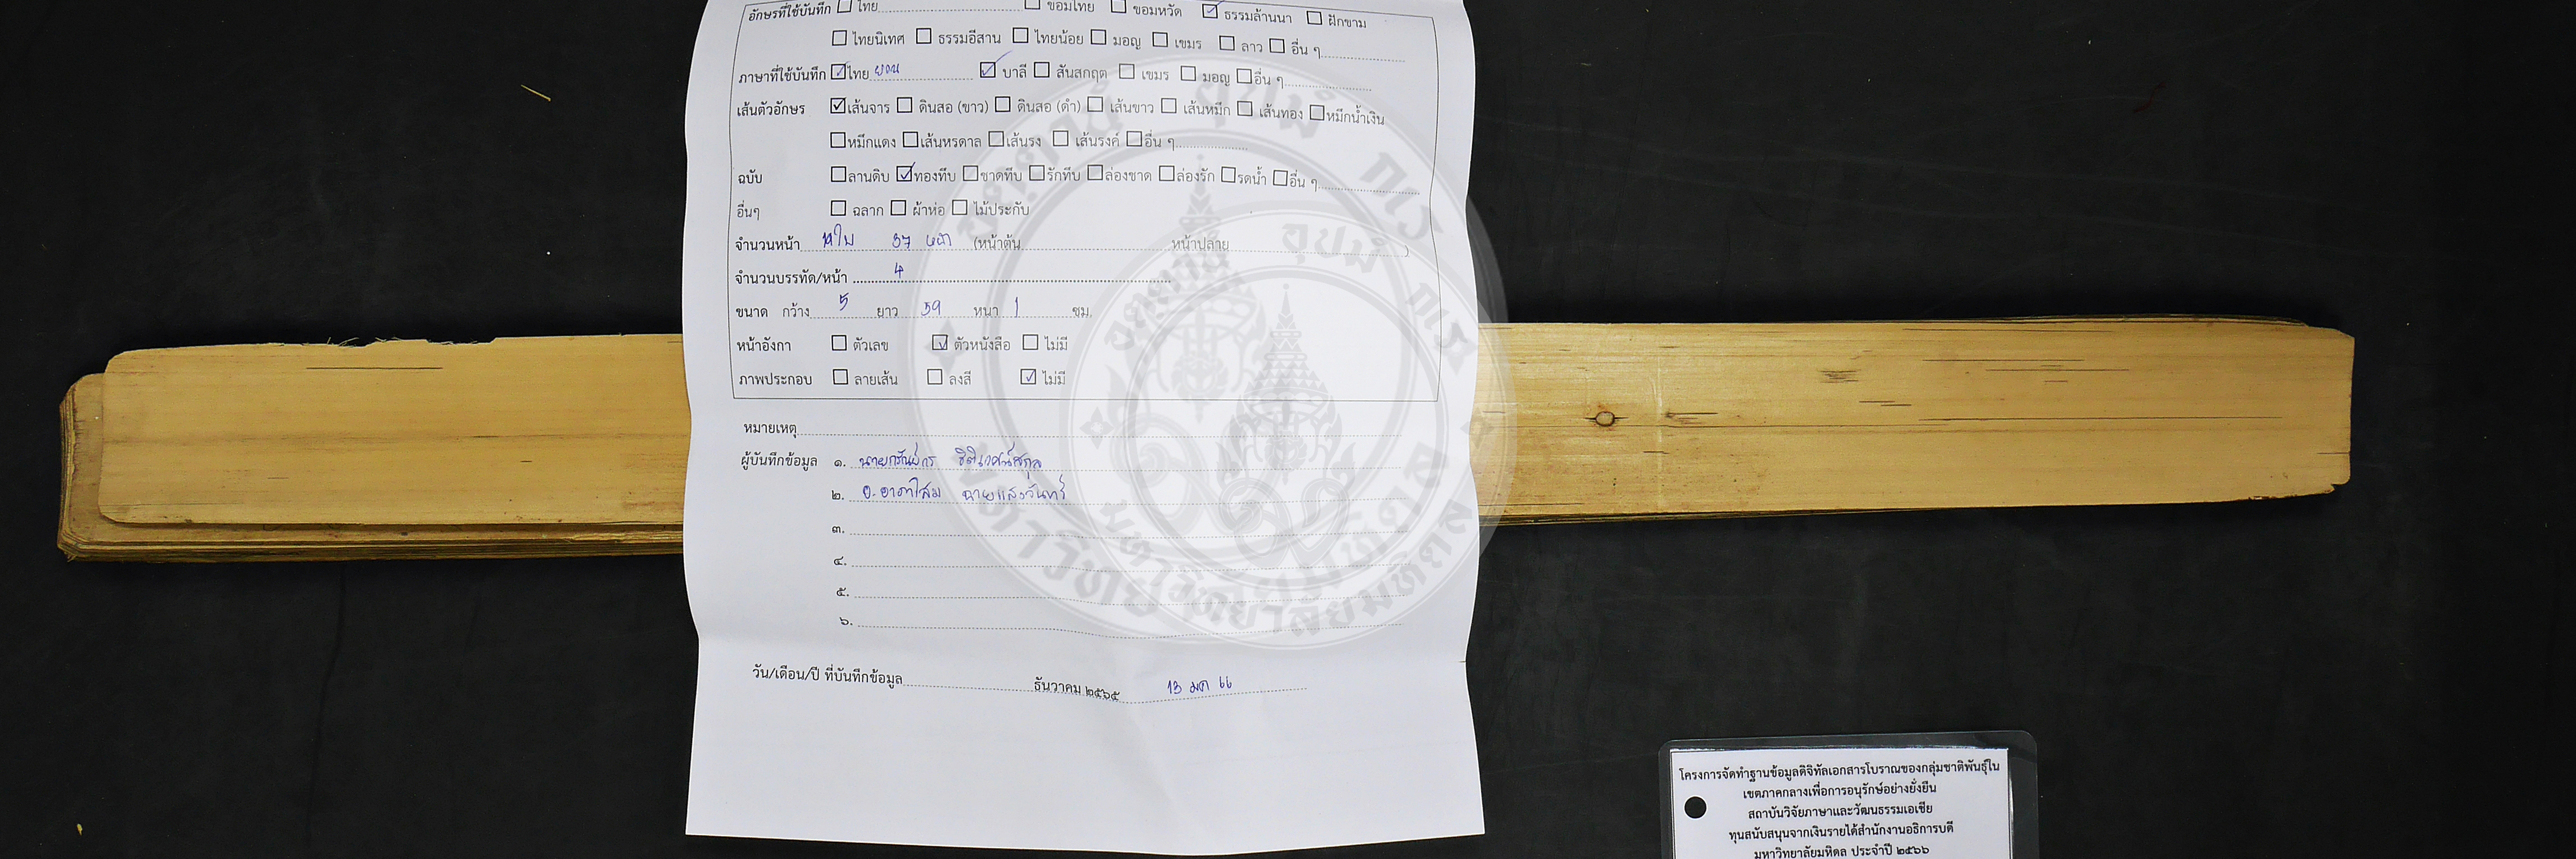 อักษรที่ใช้บันทึก ☐ ไทย ☐ ขอมไทย ☐ ขอมหวัด ☑ ธรรมล้านนา ☐ ฝักขาม
☐ ไทยนิเทศ ☐ ธรรมอีสาน ☐ ไทยน้อย ☐ มอญ ☐ เขมร ☐ ลาว ☐ อื่น ๆ
ภาษาที่ใช้บันทึก ☑ ไทย ยวน ☑ บาลี ☐ สันสกฤต ☐ เขมร ☐ มอญ ☐ อื่น ๆ
เส้นตัวอักษร ☑ เส้นจาร ☐ ดินสอ (ขาว) ☐ ดินสอ (ดำ) ☐ เส้นขาว ☐ เส้นหมึก ☐ เส้นทอง ☐ หมึกน้ำเงิน
☐ หมึกแดง ☐ เส้นหรดาล ☐ เส้นรง ☐ เส้นรงค์ ☐ อื่น ๆ
ฉบับ ☐ ลานดิบ ☑ ทองทึบ ☐ ชาดทึบ ☐ รักทึบ ☐ ล่องชาด ☐ ล่องรัก ☐ รดน้ำ ☐ อื่น ๆ
อื่นๆ ☐ ฉลาก ☐ ผ้าห่อ ☐ ไม้ประกับ
จำนวนหน้า 19 ใบ 37 หน้า (หน้าต้น หน้าปลาย )
จำนวนบรรทัด/หน้า 4
ขนาด กว้าง 5 ยาว 59 หนา 1 ซม.
หน้าอังกา ☐ ตัวเลข ☑ ตัวหนังสือ ☐ ไม่มี
ภาพประกอบ ☐ ลายเส้น ☐ ลงสี ☑ ไม่มี
หมายเหตุ
ผู้บันทึกข้อมูล ๑.
๒. อ. อาภาโสม ฉายแสงจันทร์
๓.
๔.
๕.
๖.
วัน/เดือน/ปี ที่บันทึกข้อมูล ธันวาคม ๒๕๖๕ 13 มค 66
โครงการจัดทำฐานข้อมูลดิจิทัลเอกสารโบราณของกลุ่มชาติพันธุ์ใน
เขตภาคกลางเพื่อการอนุรักษ์อย่างยั่งยืน
สถาบันวิจัยภาษาและวัฒนธรรมเอเชีย
ทุนสนับสนุนจากเงินรายได้สำนักงานอธิการบดี
มหาวิทยาลัยมหิดล ประจำปี ๒๕๖๖
อตฺตานํ อุปมํ กเร
มหาวิทยาลัยมหิดล